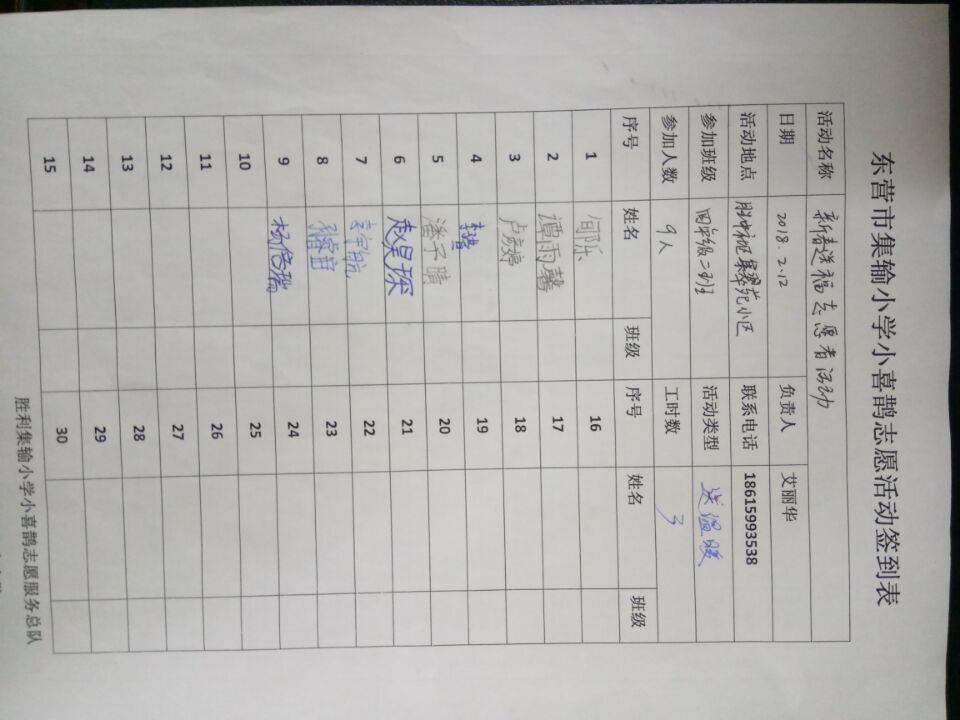 东营市集输小学小喜鹊志愿活动签到表
活动名称 新春送福志愿者活动
日期 2018.2.12 负责人 艾丽华
活动地点 小区 联系电话 18615993538
参加班级 四年级二班 活动类型 送温暖
参加人数 9人 工时数 3
序号 姓名 班级 序号 姓名 班级
1 16
2 谭雨馨 17
3 卢彦婷 18
4 19
5 潘子晴 20
6 赵昊琛 21
7 李宇航 22
8 23
9 杨倍瑞 24
10 25
11 26
12 27
13 28
14 29
15 30
胜利集输小学小喜鹊志愿服务总队